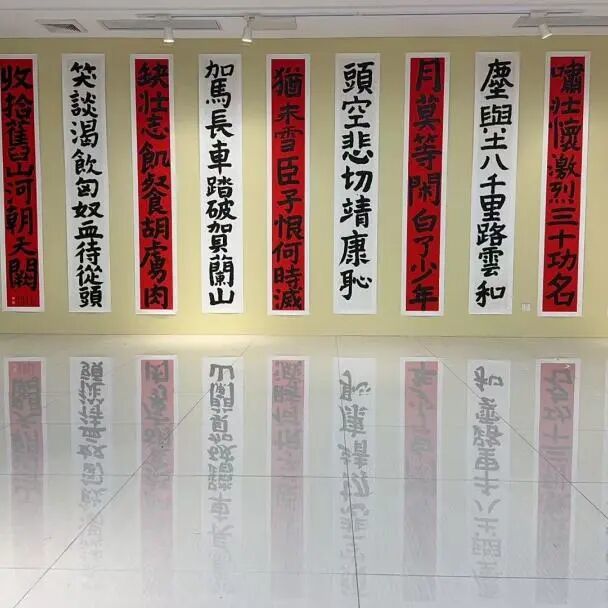 嘯壯懷激烈三十功名
塵與土八千里路雲和
月莫等閑白了少年
頭空悲切靖康恥
猶未雪臣子恨何時滅
駕長車踏破賀蘭山
缺壯志飢餐胡虜肉
笑談渴飲匈奴血待從頭
收拾舊山河朝天闕